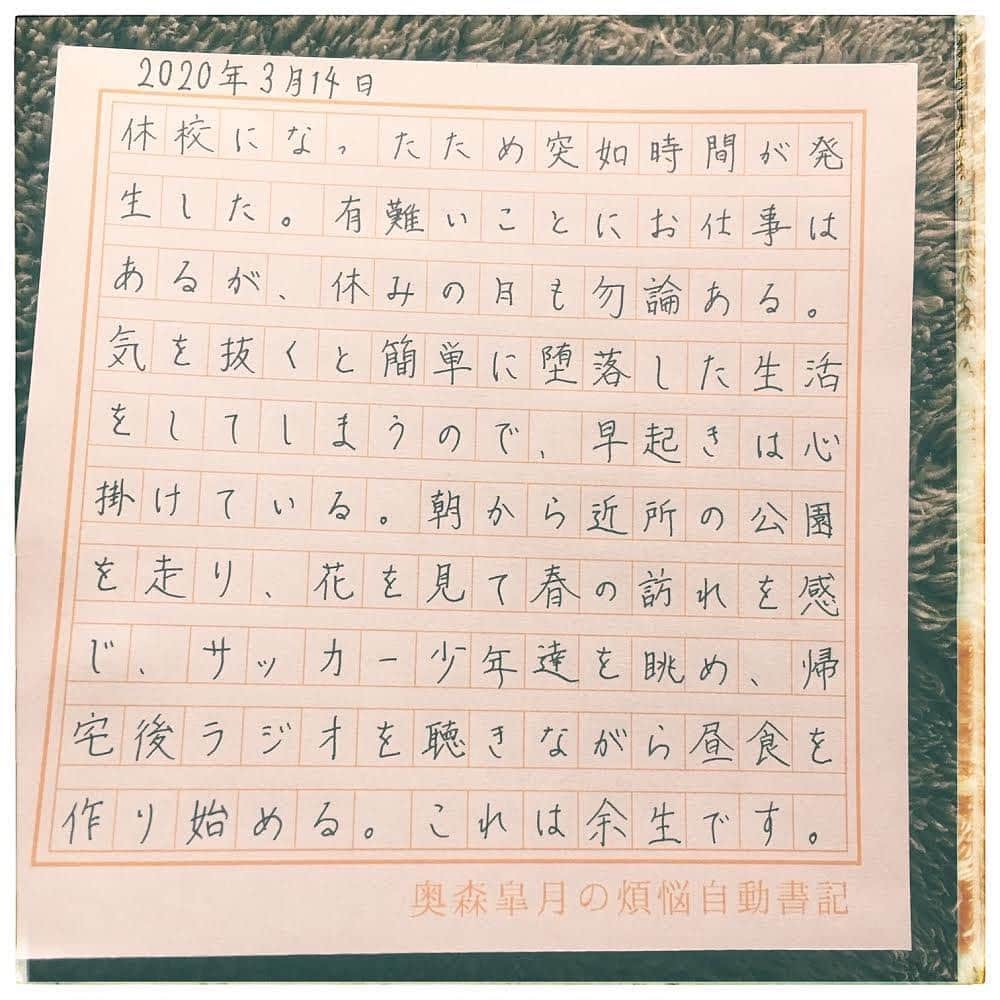 2020年3月14日
休校になったため突如時間が発
生した。有難いことにお仕事は
あるが、休みの日も勿論ある。
気を抜くと簡単に堕落した生活
をしてしまうので、早起きは心
掛けている。朝から近所の公園
を走り、花を見て春の訪れを感
じ、サッカー少年達を眺め、帰
宅後ラジオを聴きながら昼食を
作り始める。これは余生です。
奥森皐月の煩悩自動書記